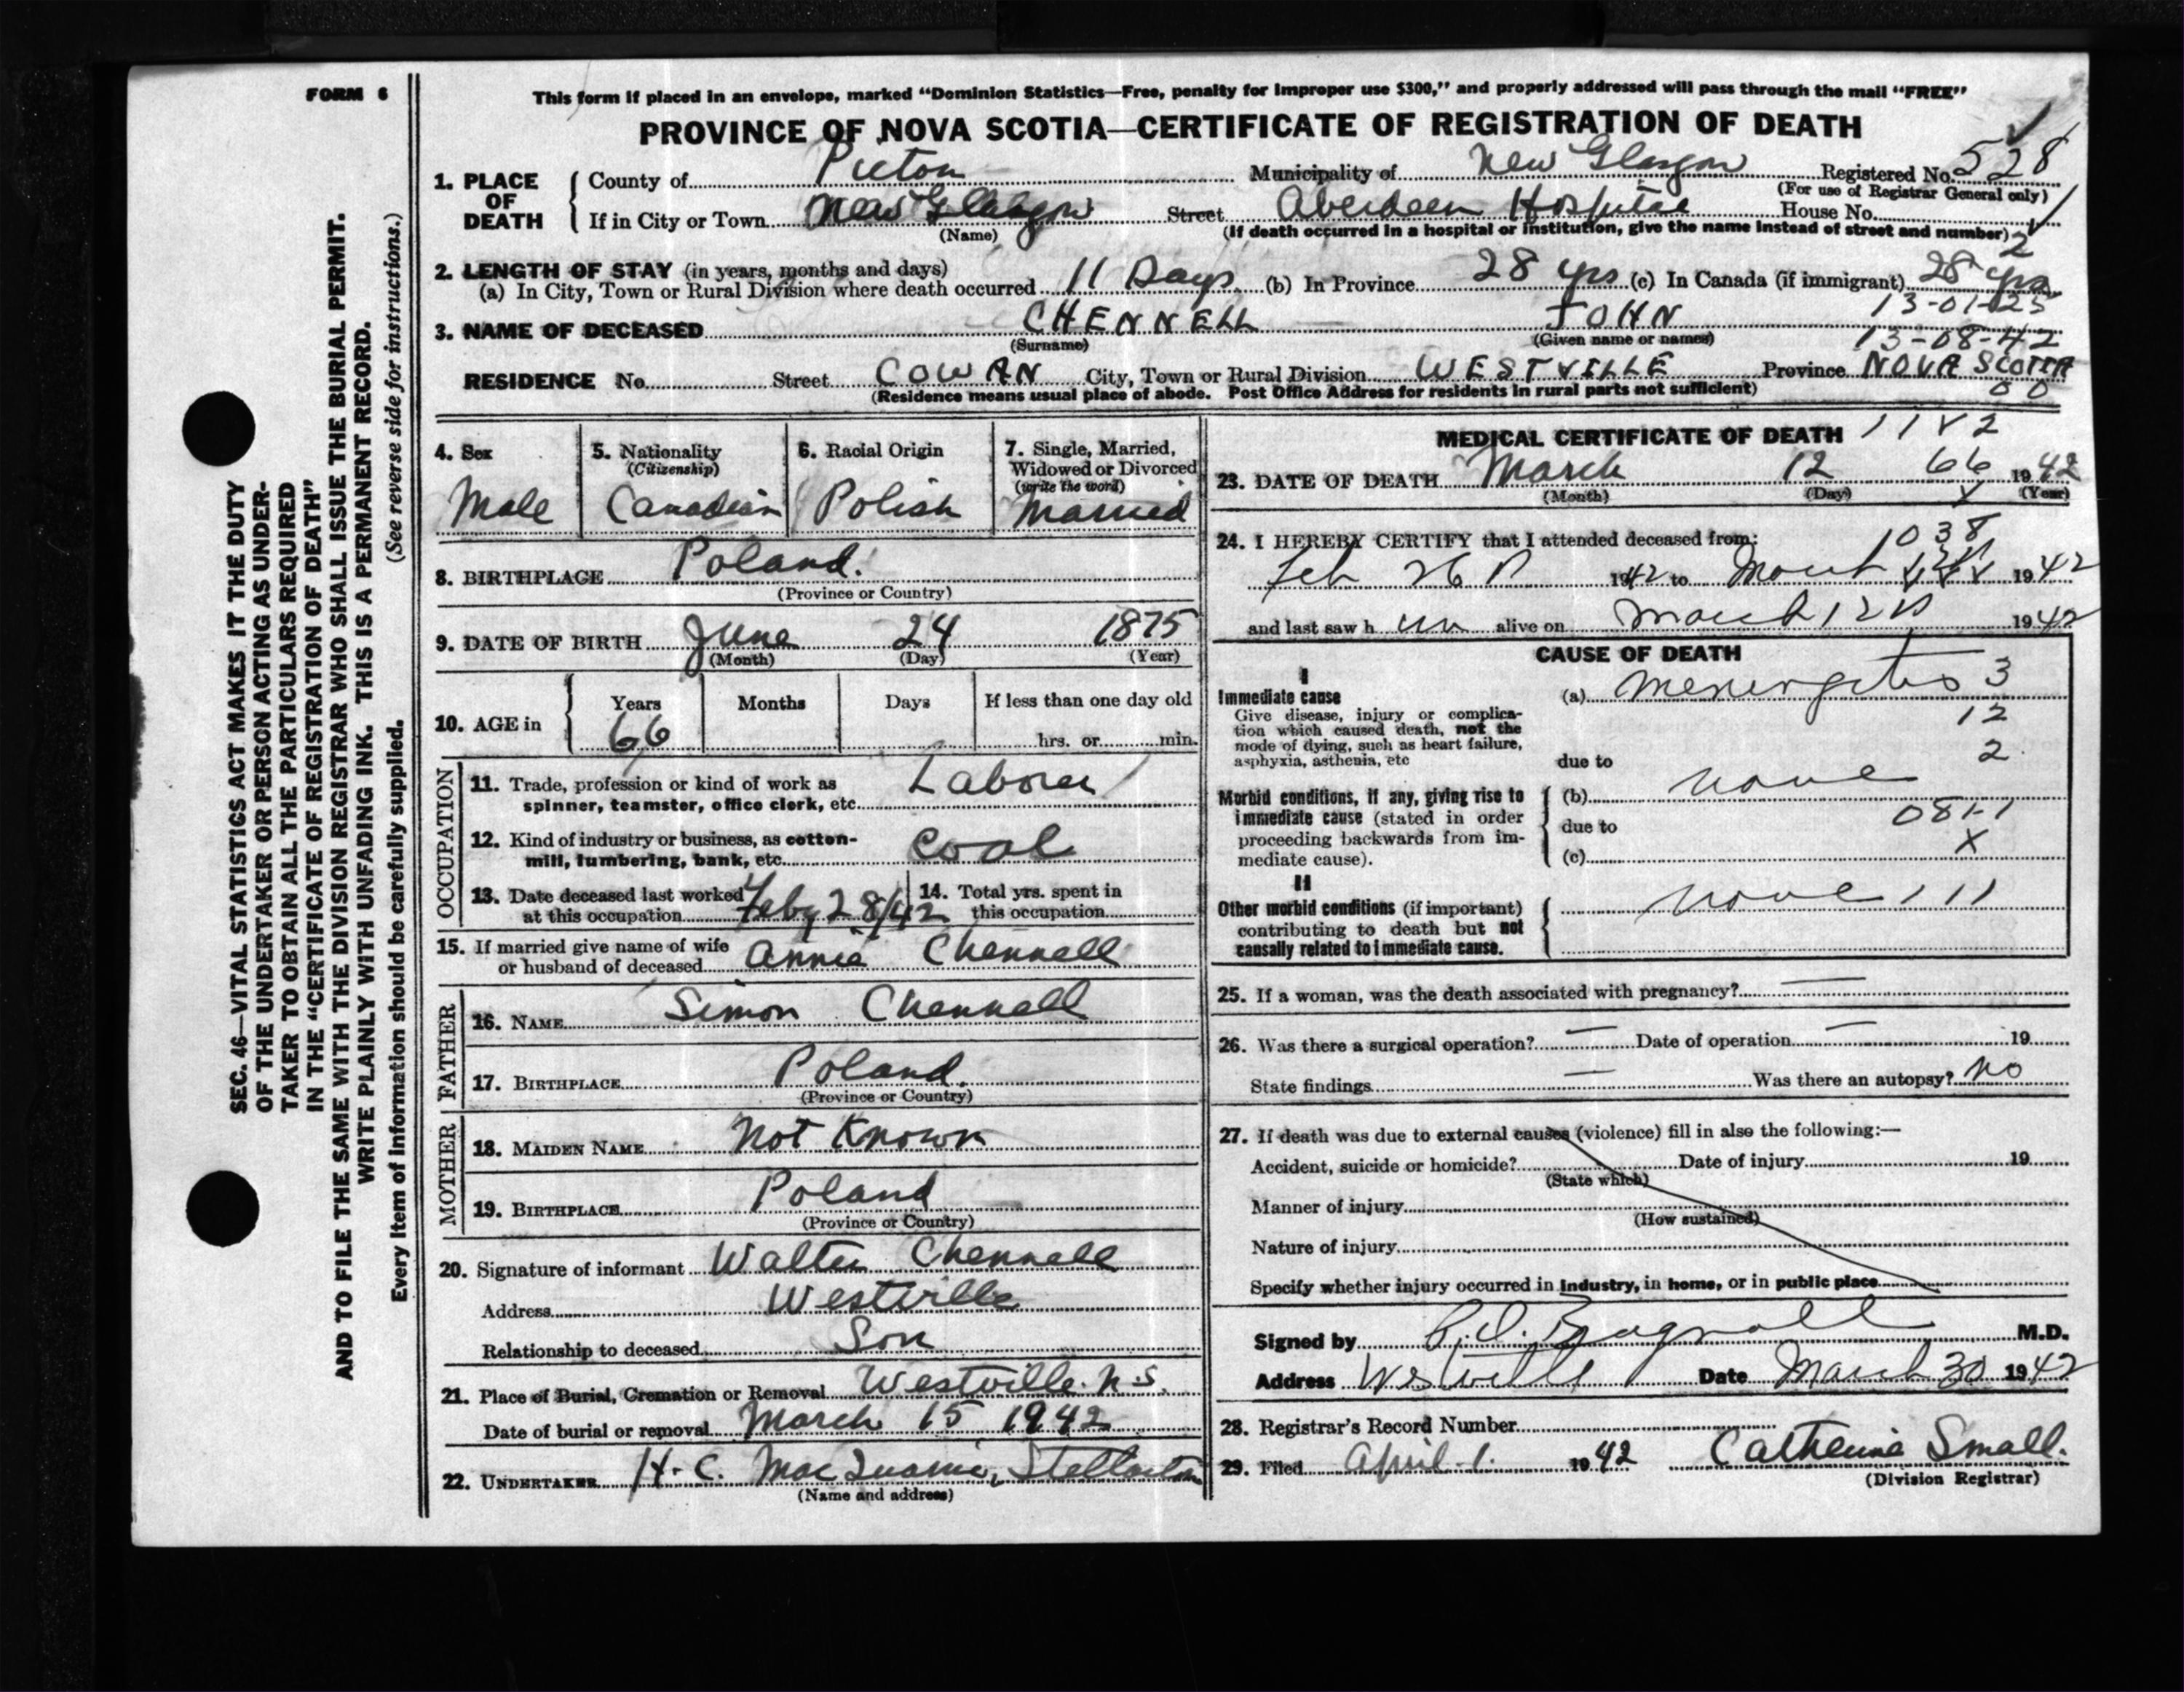 FORM 6
This form if placed in an envelope, marked “Dominion Statistics—Free, penalty for improper use $300,” and properly addressed will pass through the mail “FREE”
PROVINCE OF NOVA SCOTIA—CERTIFICATE OF REGISTRATION OF DEATH
1. PLACE OF DEATH
County of Pictou Municipality of New Glasgow Registered No. 528
(For use of Registrar General only)
If in City or Town New Glasgow Street Aberdeen Hospital House No.
(Name) (If death occurred in a hospital or institution, give the name instead of street and number)
2
2. LENGTH OF STAY (in years, months and days)
(a) In City, Town or Rural Division where death occurred 11 Days (b) In Province 28 yrs (c) In Canada (if immigrant) 28 yrs
13-01-25
3. NAME OF DECEASED CHENNELL JOHN
(Surname) (Given name or names)
13-08-42
RESIDENCE No. Street COWAN City, Town or Rural Division WESTVILLE Province NOVA SCOTIA
(Residence means usual place of abode. Post Office Address for residents in rural parts not sufficient) 00
4. Sex
Male
5. Nationality
(Citizenship)
Canadian
6. Racial Origin
Polish
7. Single, Married,
Widowed or Divorced
(write the word)
Married
8. BIRTHPLACE Poland.
(Province or Country)
9. DATE OF BIRTH June 24 1875
(Month) (Day) (Year)
10. AGE in Years Months Days If less than one day old
66 hrs. or min.
OCCUPATION
11. Trade, profession or kind of work as
spinner, teamster, office clerk, etc. Laborer
12. Kind of industry or business, as cotton-
mill, lumbering, bank, etc. Coal
13. Date deceased last worked
at this occupation Feby 28/42
14. Total yrs. spent in
this occupation
15. If married give name of wife
or husband of deceased Annie Chennell
FATHER
16. NAME Simon Chennell
17. BIRTHPLACE Poland.
(Province or Country)
MOTHER
18. MAIDEN NAME Not Known
19. BIRTHPLACE Poland
(Province or Country)
20. Signature of informant Walter Chennell
Address Westville
Relationship to deceased Son
21. Place of Burial, Cremation or Removal Westville. N.S.
Date of burial or removal March 15 1942
22. UNDERTAKER H. C. MacQuarrie, Stellarton
(Name and address)
MEDICAL CERTIFICATE OF DEATH 1182
66
23. DATE OF DEATH March 12 1942
(Month) (Day) (Year)
24. I HEREBY CERTIFY that I attended deceased from:
1038
Feb 26 1942 to March 1942
and last saw h im alive on March 12 1942
CAUSE OF DEATH
I
Immediate cause
Give disease, injury or complica-
tion which caused death, not the
mode of dying, such as heart failure,
asphyxia, asthenia, etc
(a) Meningitis 3
12
2
due to
Morbid conditions, if any, giving rise to
immediate cause (stated in order
proceeding backwards from im-
mediate cause).
(b) none
081-1
due to
X
(c)
II
Other morbid conditions (if important)
contributing to death but not
causally related to immediate cause.
none 111
25. If a woman, was the death associated with pregnancy? —
26. Was there a surgical operation? — Date of operation — 19
State findings — Was there an autopsy? No
27. If death was due to external causes (violence) fill in also the following:—
Accident, suicide or homicide? Date of injury 19
(State which)
Manner of injury
(How sustained)
Nature of injury
Specify whether injury occurred in industry, in home, or in public place
Signed by Bagnall M.D.
Address Westville Date March 30 1942
28. Registrar’s Record Number
29. Filed April 1. 1942 Catherine Small.
(Division Registrar)
SEC. 46—VITAL STATISTICS ACT MAKES IT THE DUTY
OF THE UNDERTAKER OR PERSON ACTING AS UNDER-
TAKER TO OBTAIN ALL THE PARTICULARS REQUIRED
IN THE “CERTIFICATE OF REGISTRATION OF DEATH”
AND TO FILE THE SAME WITH THE DIVISION REGISTRAR WHO SHALL ISSUE THE BURIAL PERMIT.
WRITE PLAINLY WITH UNFADING INK. THIS IS A PERMANENT RECORD.
Every item of information should be carefully supplied. (See reverse side for instructions.)